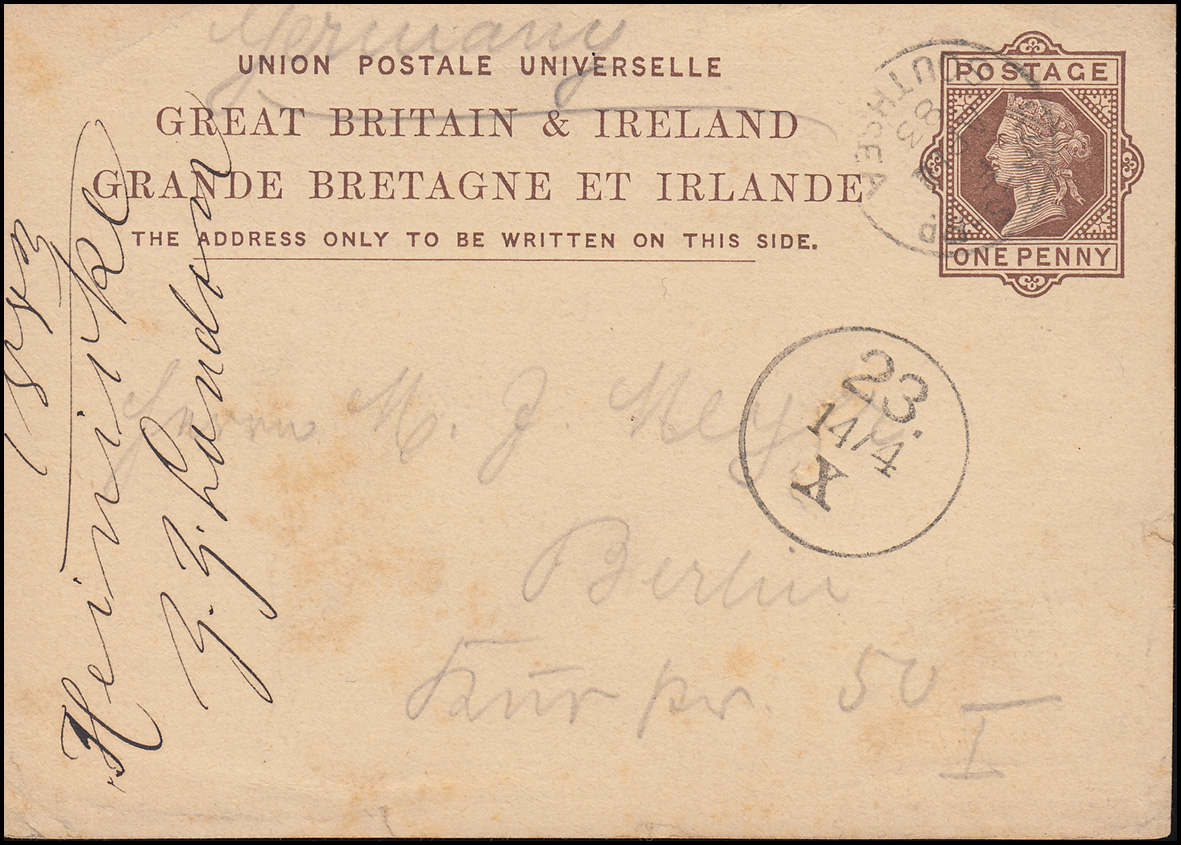 Germany
UNION POSTALE UNIVERSELLE
GREAT BRITAIN & IRELAND
GRANDE BRETAGNE ET IRLANDE
THE ADDRESS ONLY TO BE WRITTEN ON THIS SIDE.
POSTAGE
ONE PENNY
SOUTHSEA
83
23.
14/4
X
Herrn M. J. Meyer
Berlin
50
I
Heinicke
London